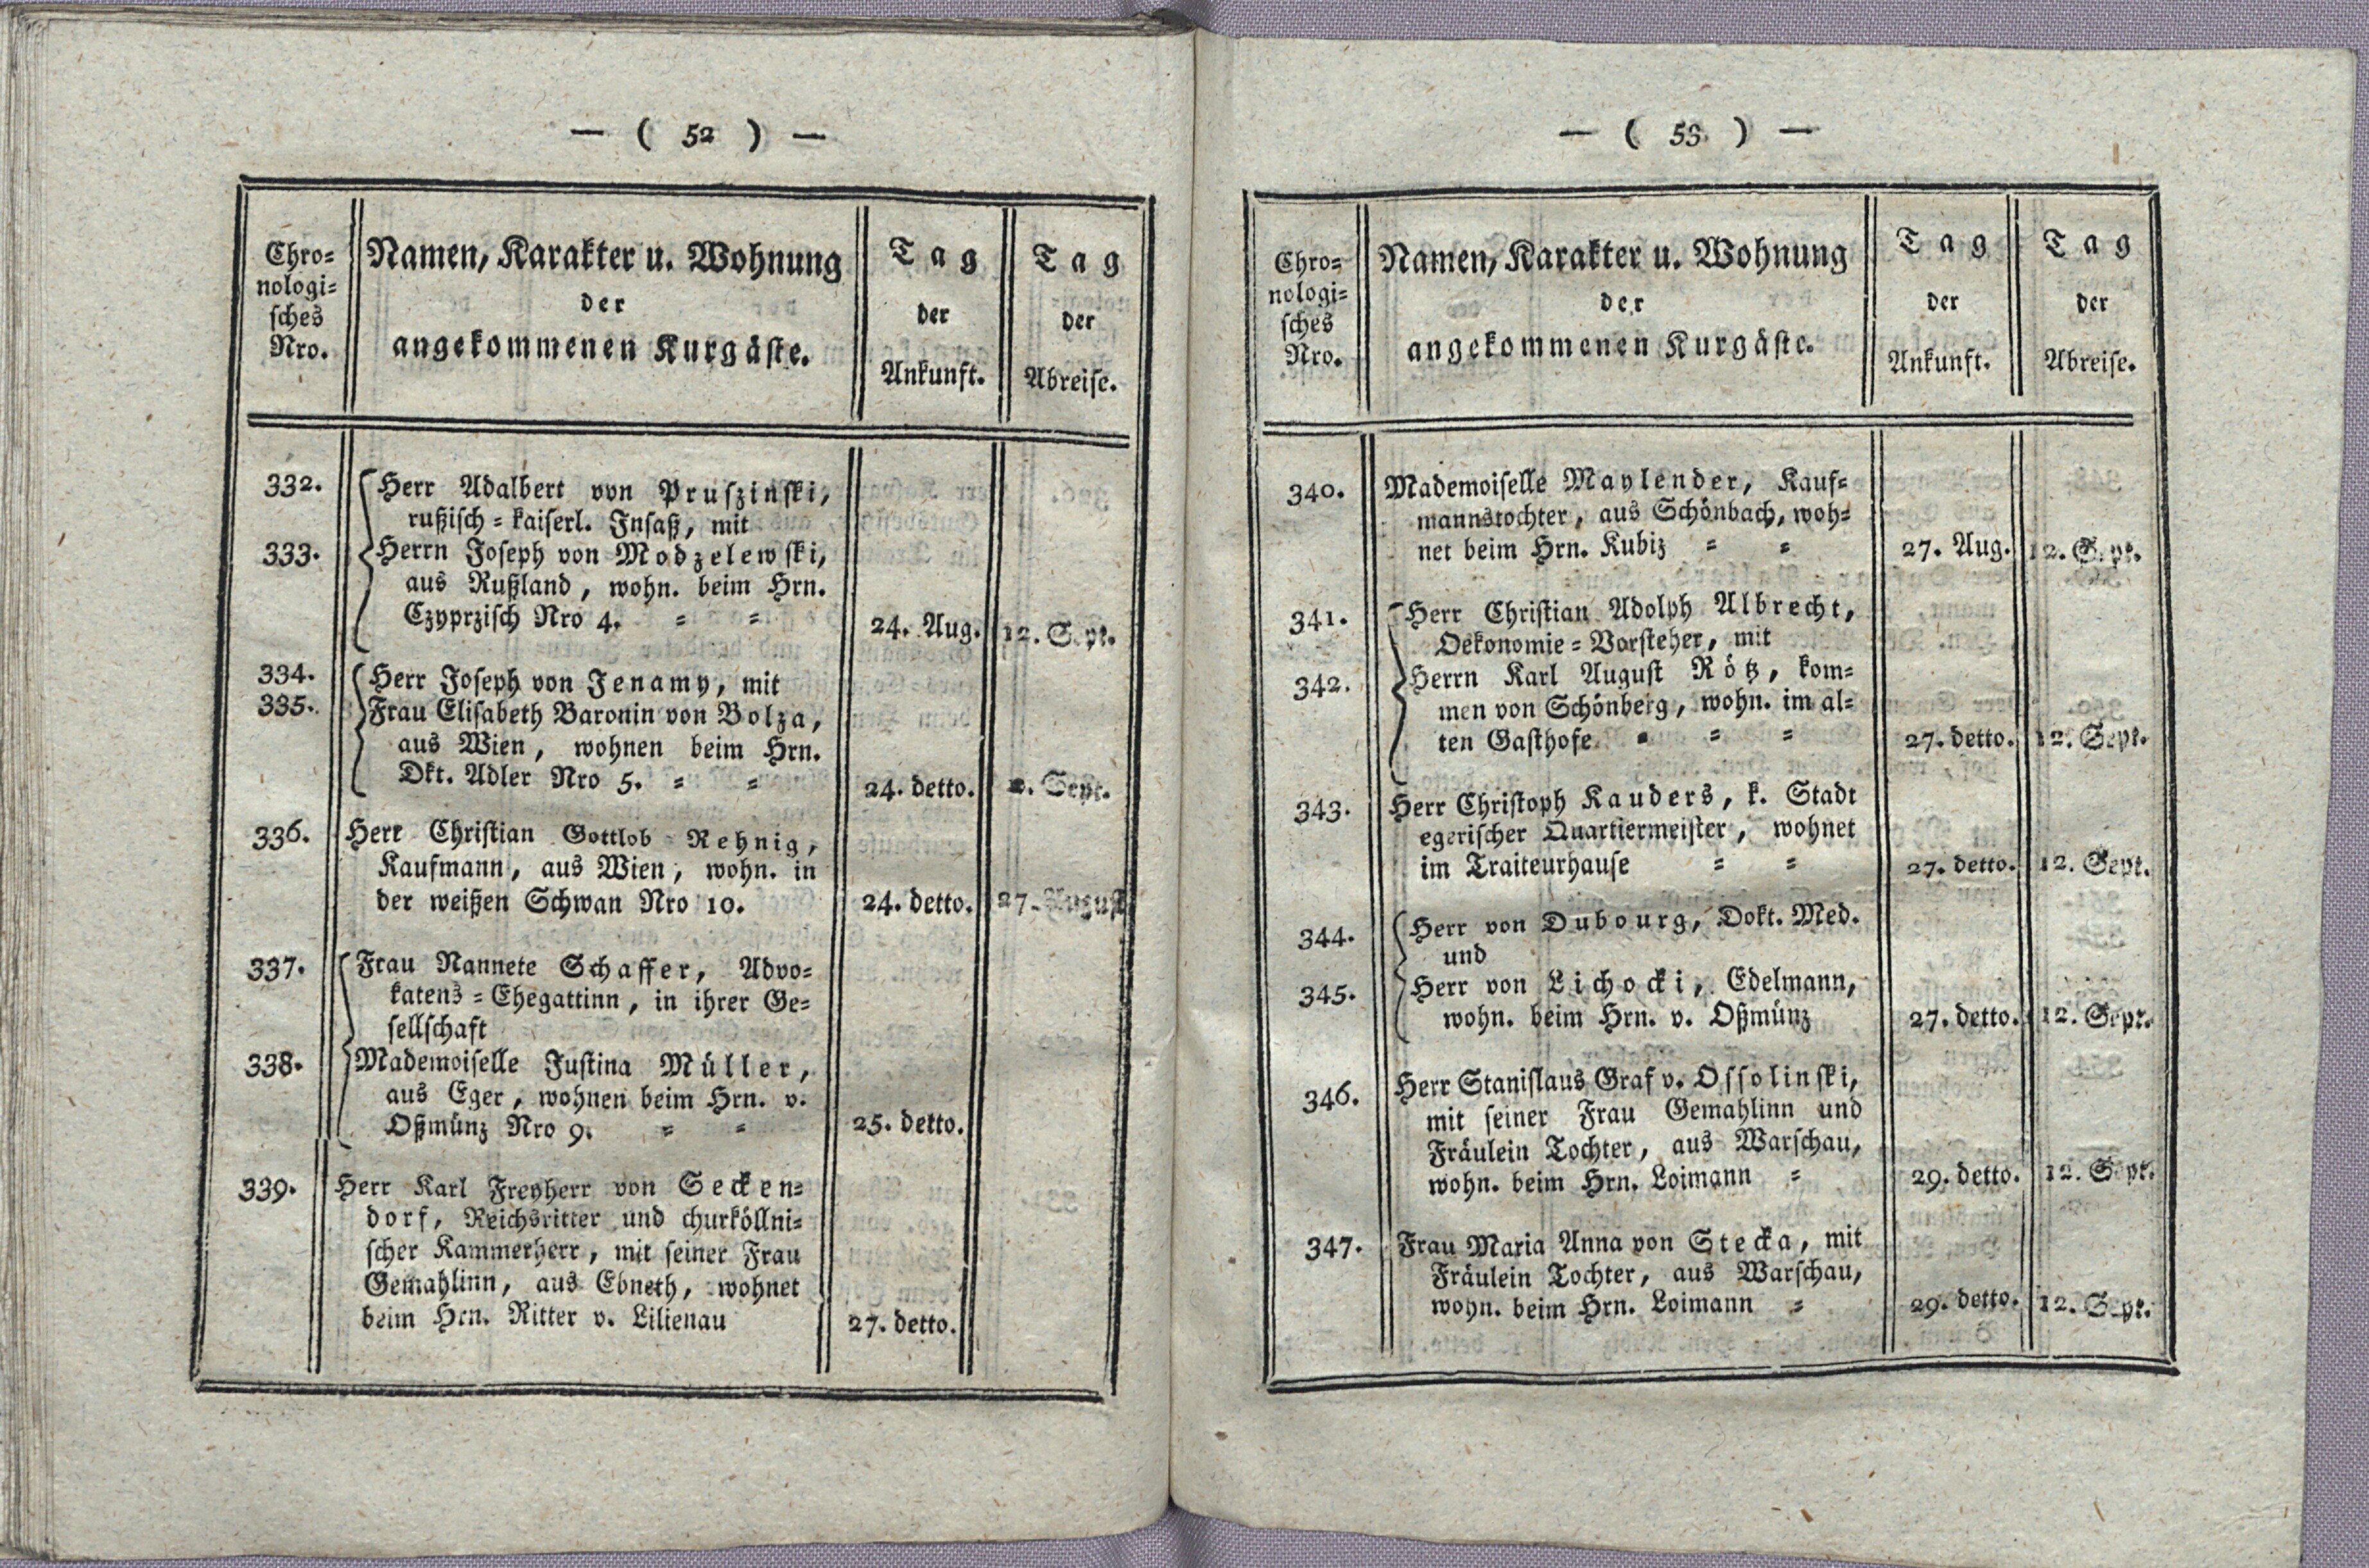 — ( 52 ) —
Chro=
nologi=
sches
Nro.
Namen, Karakter u. Wohnung
der
angekommenen Kurgäste.
Tag
der
Ankunft.
Tag
der
Abreise.
332. Herr Adalbert von Pruszinski,
rußisch=kaiserl. Insaß, mit
333. Herrn Joseph von Modzelewski,
aus Rußland, wohn. beim Hrn.
Czyprzisch Nro 4. = = 24. Aug. 12. Sept.
334. Herr Joseph von Jenamy, mit
335. Frau Elisabeth Baronin von Bolza,
aus Wien, wohnen beim Hrn.
Dkt. Adler Nro 5. = = 24. detto. Sept.
336. Herr Christian Gottlob Rehnig,
Kaufmann, aus Wien, wohn. in
der weißen Schwan Nro 10. 24. detto. 27. August
337. Frau Nannete Schaffer, Advo=
katens=Ehegattinn, in ihrer Ge=
sellschaft
338. Mademoiselle Justina Müller,
aus Eger, wohnen beim Hrn. v.
Oßmünz Nro 9. = = 25. detto.
339. Herr Karl Freyherr von Secken=
dorf, Reichsritter und churköllni=
scher Kammerherr, mit seiner Frau
Gemahlinn, aus Ebneth, wohnet
beim Hrn. Ritter v. Lilienau 27. detto.
— ( 53 ) —
Chro=
nologi=
sches
Nro.
Namen, Karakter u. Wohnung
der
angekommenen Kurgäste.
Tag
der
Ankunft.
Tag
der
Abreise.
340. Mademoiselle Maylender, Kauf=
mannstochter, aus Schönbach, woh=
net beim Hrn. Kubiz = = 27. Aug. 12. Sept.
341. Herr Christian Adolph Albrecht,
Oekonomie=Vorsteher, mit
342. Herrn Karl August Rötz, kom=
men von Schönberg, wohn. im al=
ten Gasthofe = = = 27. detto. 12. Sept.
343. Herr Christoph Kauders, k. Stadt
egerischer Quartiermeister, wohnet
im Traiteurhause = = 27. detto. 12. Sept.
344. Herr von Dubourg, Dokt. Med.
und
345. Herr von Lichocki, Edelmann,
wohn. beim Hrn. v. Oßmünz 27. detto. 12. Sept.
346. Herr Stanislaus Graf v. Ossolinski,
mit seiner Frau Gemahlinn und
Fräulein Tochter, aus Warschau,
wohn. beim Hrn. Loimann = 29. detto. 12. Sept.
347. Frau Maria Anna von Stecka, mit
Fräulein Tochter, aus Warschau,
wohn. beim Hrn. Loimann = 29. detto. 12. Sept.